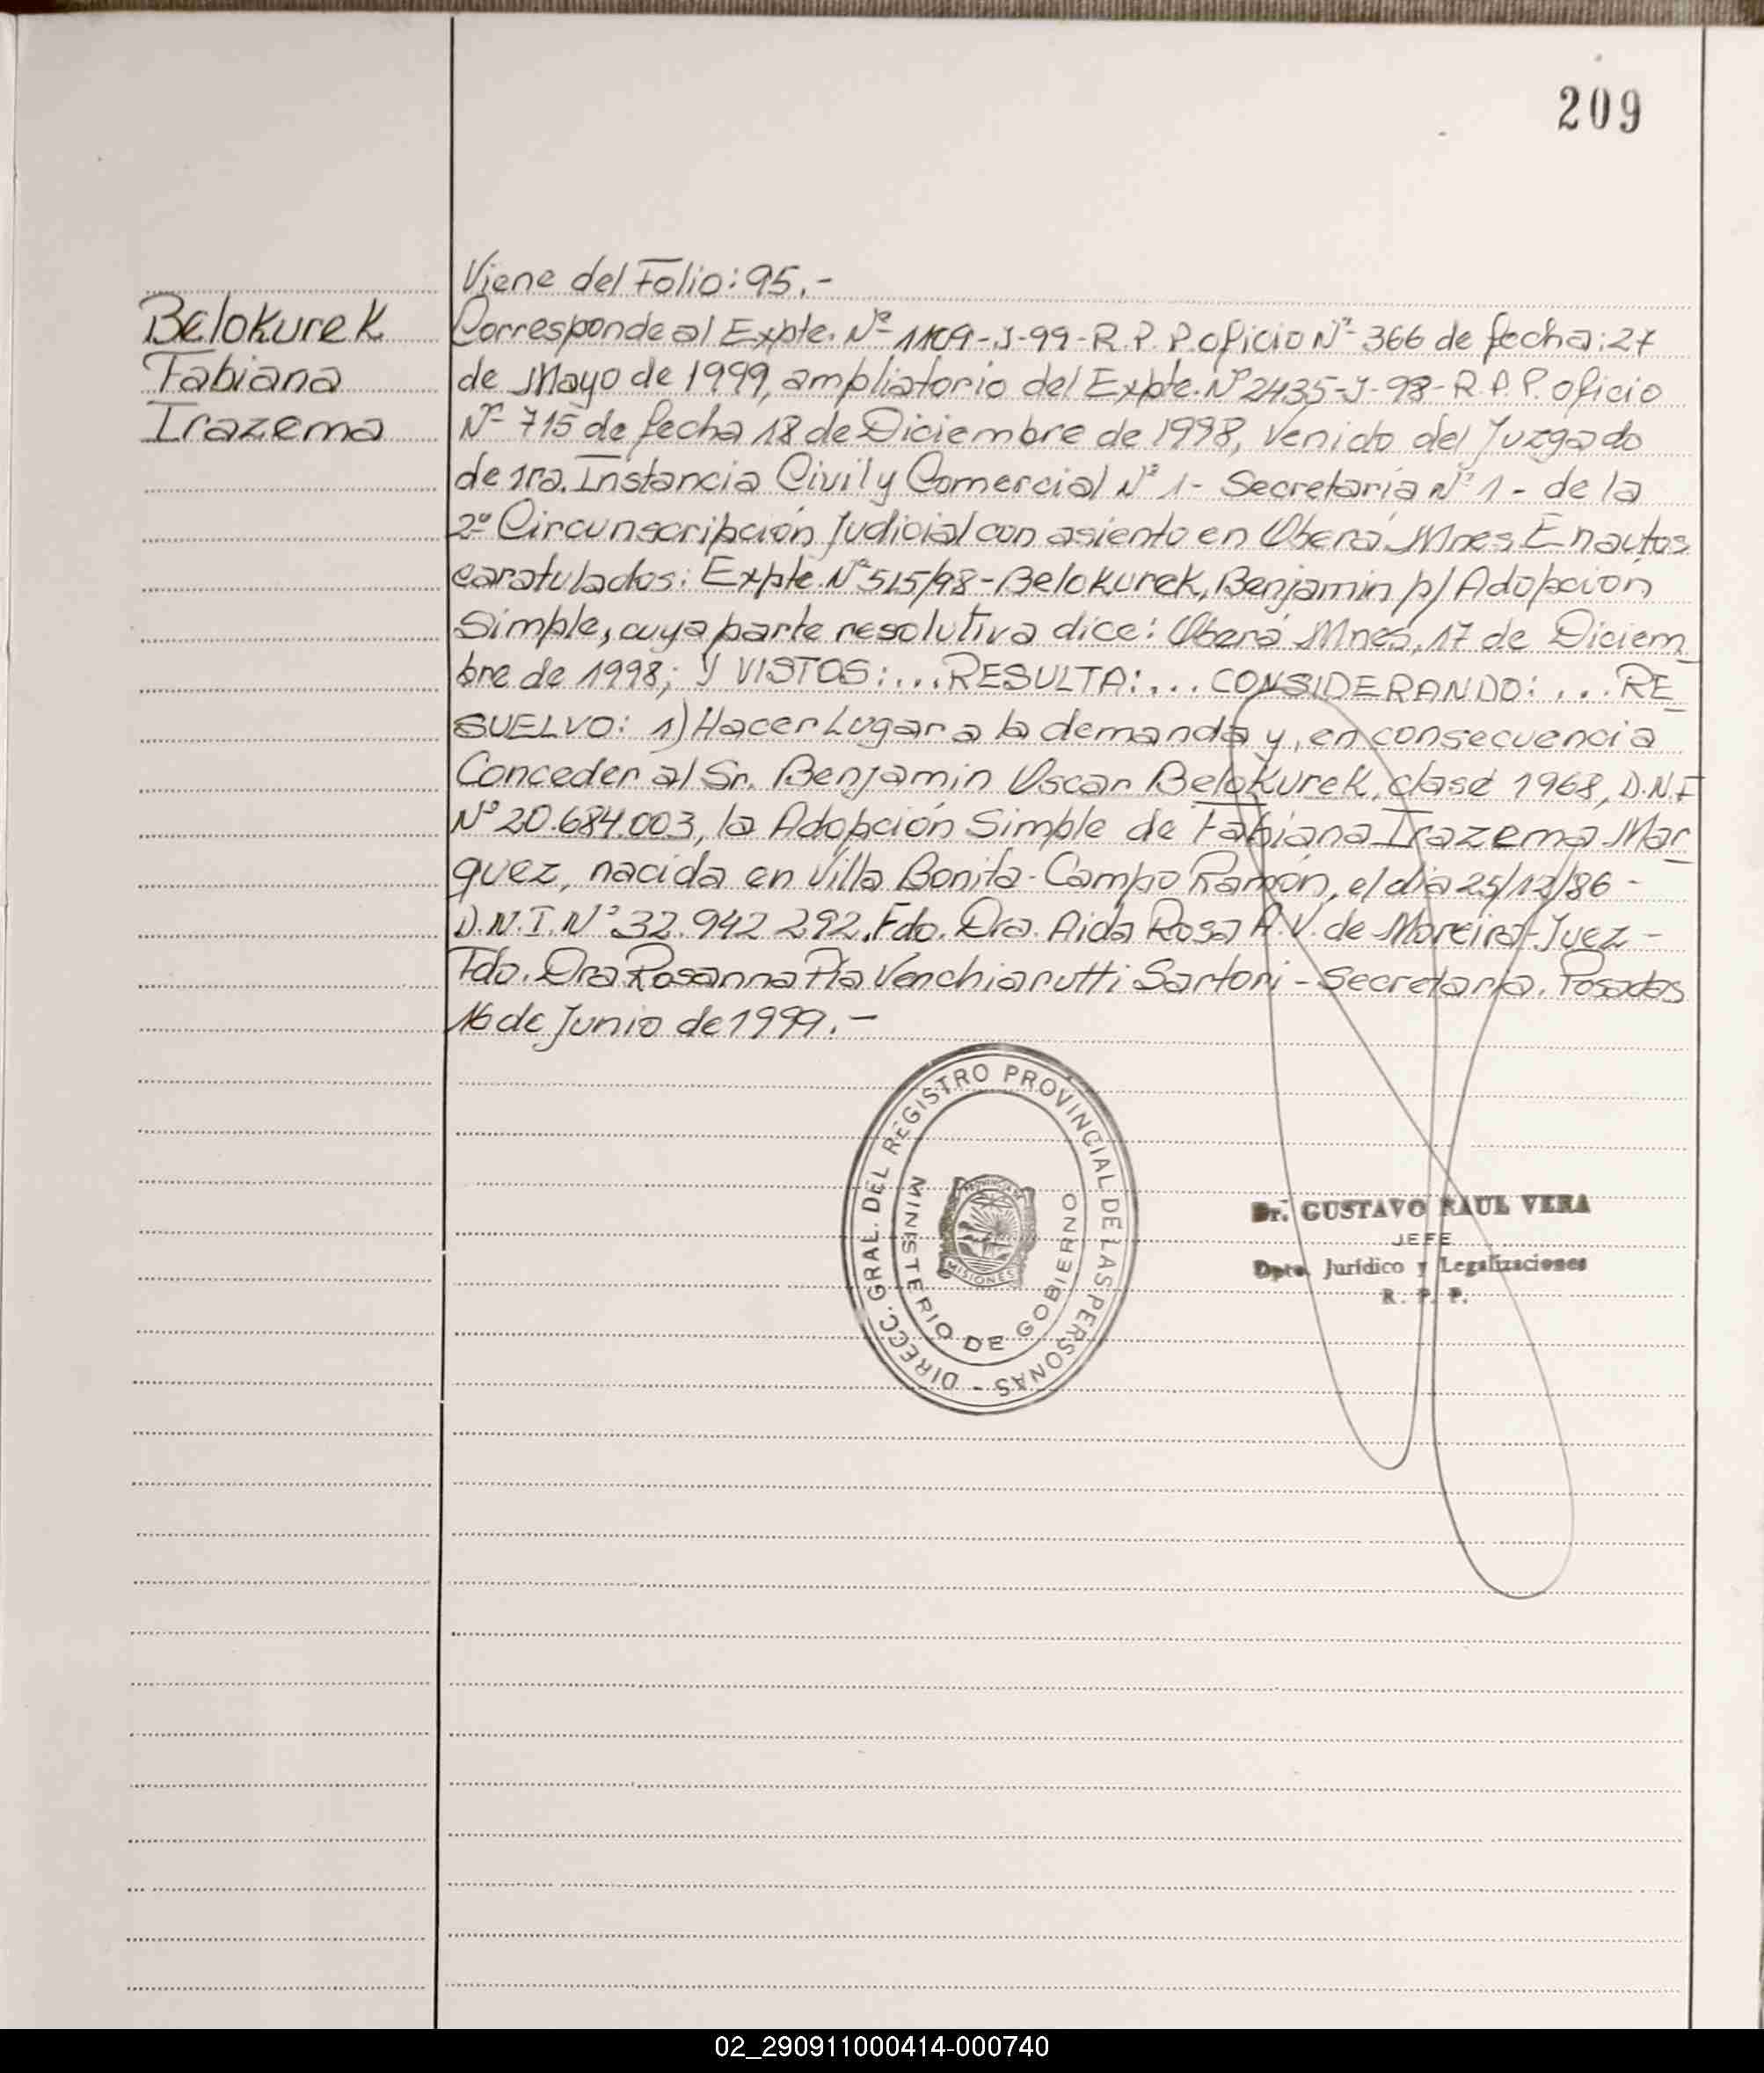 209
Viene del Folio: 95.-
Belokurek
Fabiana
Irazema
Corresponde al Expte. Nº 1109-J-99-R.P.P. oficio Nº 366 de fecha: 27
de Mayo de 1999, ampliatorio del Expte. Nº 2435-J-98-R.P.P. oficio
Nº 715 de fecha 18 de Diciembre de 1998, venido del Juzgado
de 1ra. Instancia Civil y Comercial Nº 1- Secretaría Nº 1 - de la
2º Circunscripción Judicial con asiento en Oberá Mnes. En autos
caratulados: Expte. Nº 515/98-Belokurek, Benjamin p/ Adopción
Simple, cuya parte resolutiva dice: Oberá Mnes, 17 de Diciem_
bre de 1998; Y VISTOS:...RESULTA:... CONSIDERANDO: ... RE_
SUELVO: 1) Hacer Lugar a la demanda y, en consecuencia
Conceder al Sr. Benjamin Oscar Belokurek, clase 1968, D.N.I
Nº 20.684.003, la Adopción Simple de Fabiana Irazema Mar_
quez, nacida en Villa Bonita-Campo Ramón, el día 25/12/86 -
D.N.I. Nº 32.942 292. Fdo. Dra. Aida Rosa A.V. de Moreira-Juez-
Fdo. Dra Rosanna Pía Venchiarutti Sartori - Secretaria. Posadas
16 de Junio de 1999.-
DIRECC. GRAL. DEL REGISTRO PROVINCIAL DE LAS PERSONAS -
MINISTERIO DE GOBIERNO
PROVINCIA DE
MISIONES
Dr. GUSTAVO RAUL VERA
JEFE
Dpto. Jurídico y Legalizaciones
R. P. P.
02_290911000414-000740